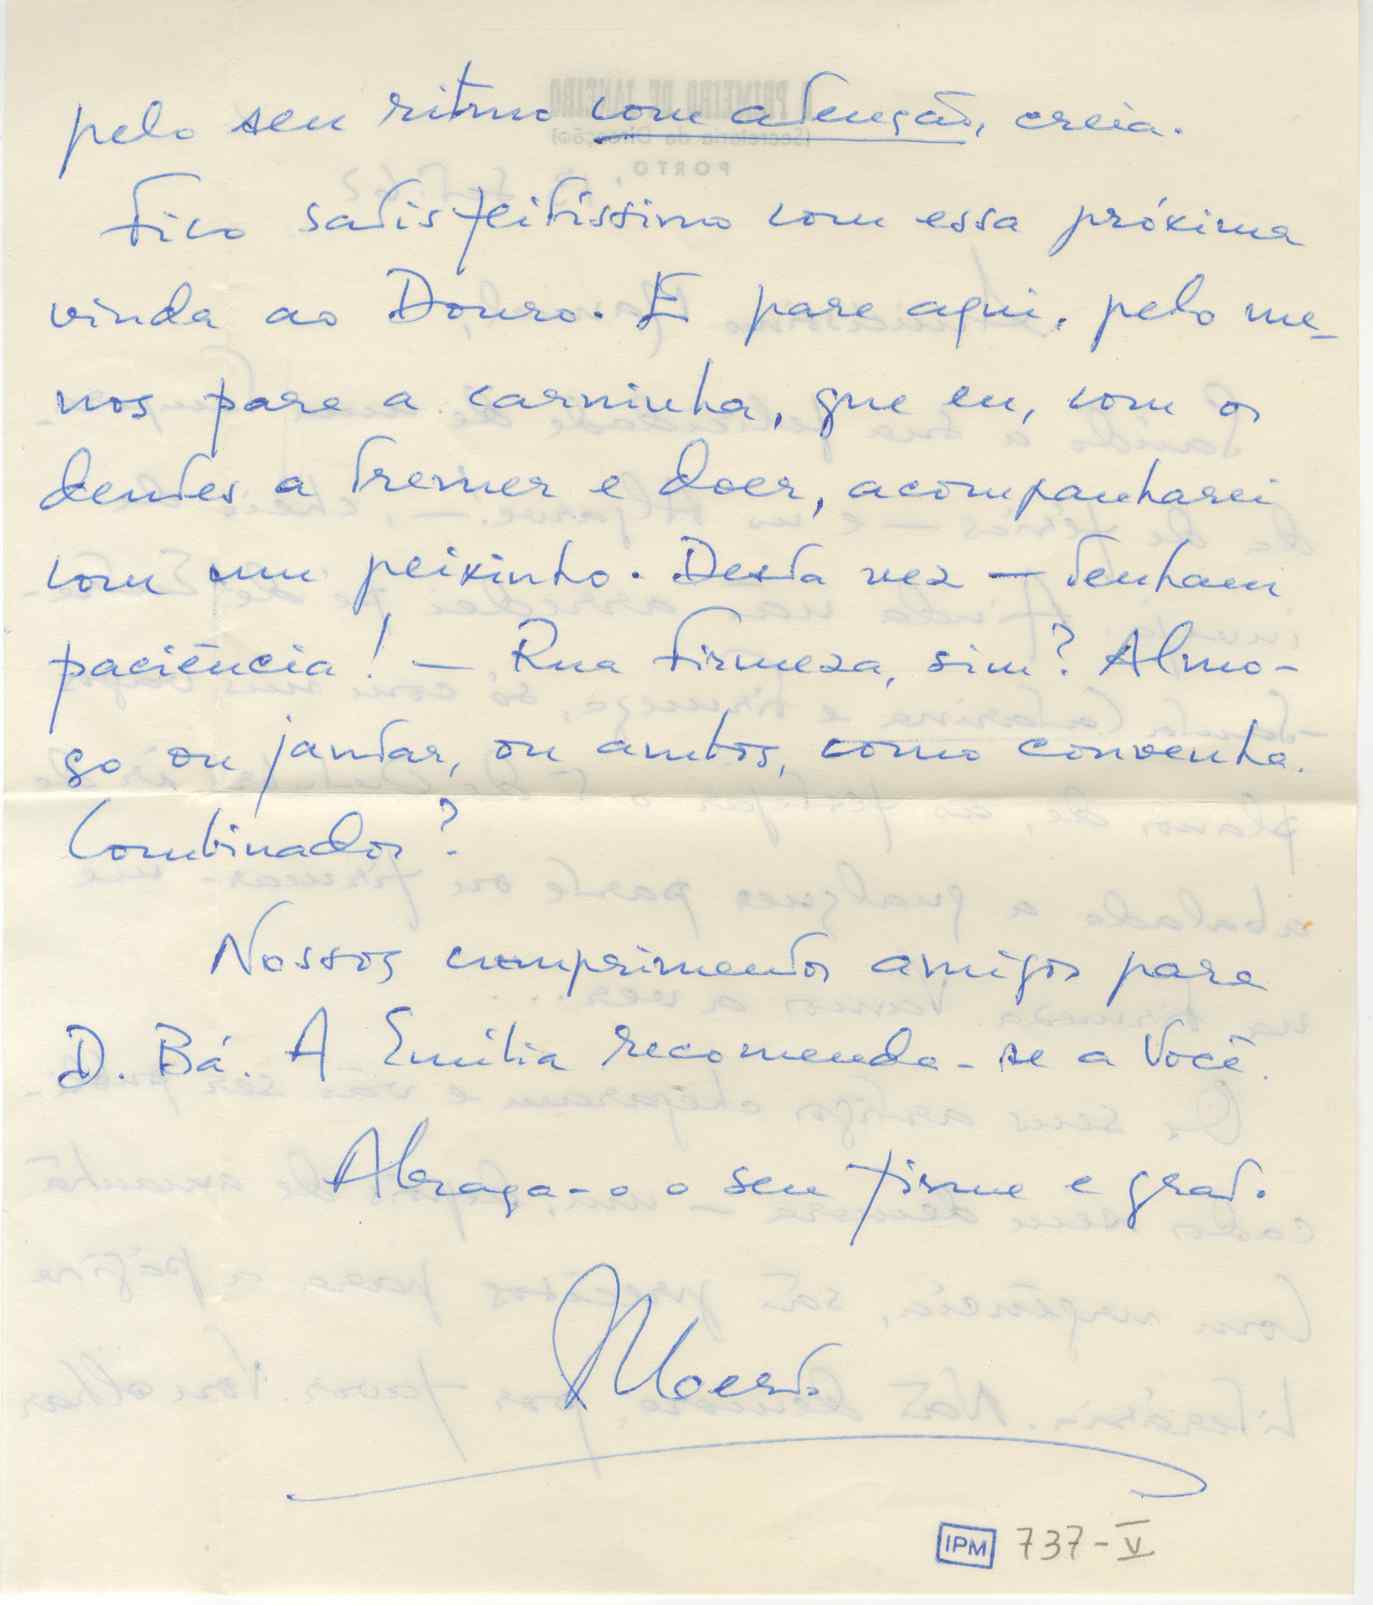 pelo seu ritmo com atenção, creia.
Fico satisfeitíssimo com essa próxima
vinda ao Douro. E pare aqui, pelo me-
nos pare a carninha, que eu, com os
dentes a tremer e doer, acompanharei
com um peixinho. Desta vez — tenham
paciência! — Rua Firmeza, sim? Almo-
ço ou jantar, ou ambos, como convenha.
Combinados?
Nossos cumprimentos amigos para
D. Bá. A Emília recomenda-se a Você.
Abraça-o o seu firme e grato
IPM 737-V